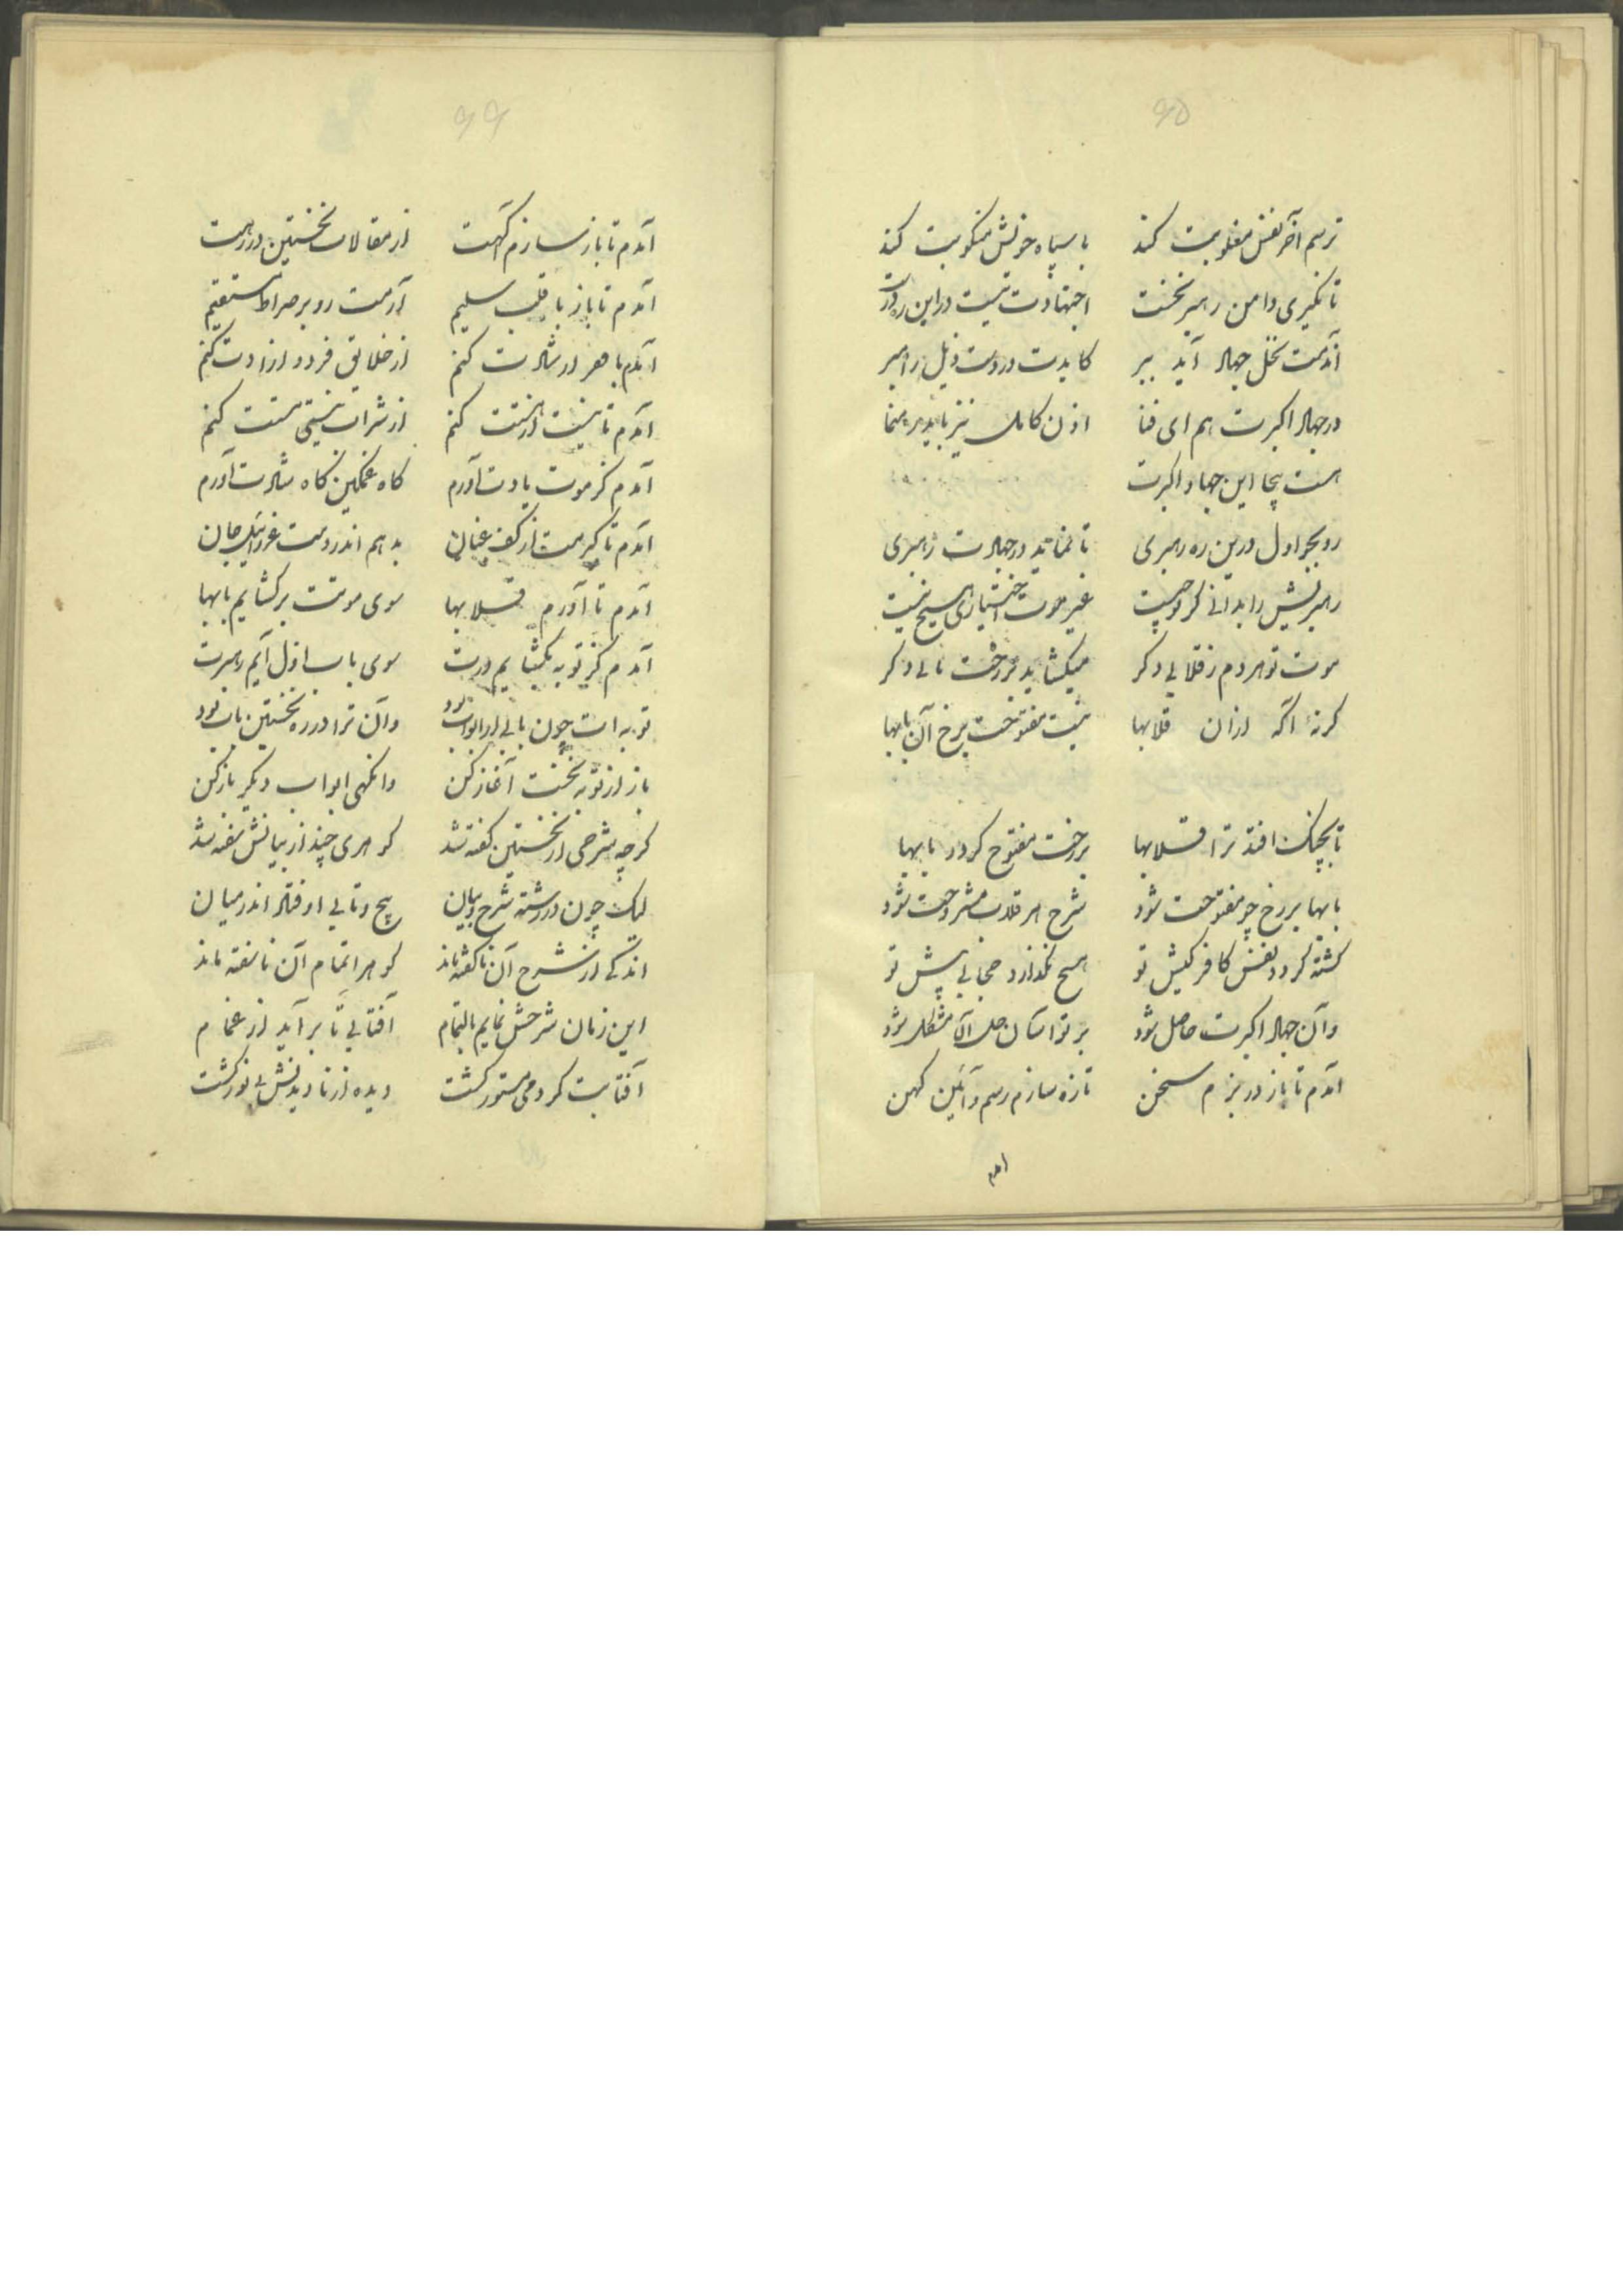 ۶۵
ترسم آخر نفس مغلوبت کند با سپاه خویش منکوبت کند
تا نگیری دامن رهبر نخست اجتهادت نیست در این ره درست
آندمت نخل جهاد آید ببر کایدت در دست ذیل راهبر
در جهاد اکبرت هم ای فتا اذن کامل نیز باید رهنما
هست پنجا این جهاد اکبرت
رو بجو اول درین ره رهبری تا نماید در جهادت رهبری
رهبریش را بدانی کرد چیست غیر موت اختیاری هیچ نیست
موت تو هر دم ز قلابی دکر میکشاید بر رخت بابی دکر
کرنهٔ آکه ازان قلابها نیست مفتوحت برخ آن بابها
تا بچنکت افتد ترا قلابها بر رخت مفتوح کردد بابها
بابها بر رخ چو مفتوحت شود شرح هر قلاب مشروحت شود
کشته کردد نفس کافر کیش تو هیچ نکذارد حجابی پیش تو
وآن جهاد اکبرت حاصل شود بر تو آسان حل آن مشکل شود
آمدم تا باز در بزم سخن تازه سازم رسم و آئین کهن
آمدم
۶۶
آمدم تا باز سازم آکهت از مقالات نخستین در رهت
آمدم تا باز با قلب سلیم آرمت رو بر صراط مستقیم
آمدم با هر ارشادت کنم از خلایق فرد و آزادت کنم
آمدم تا نیست از هستت کنم از شراب نیستی مستت کنم
آمدم کز موت یادت آورم کاه غمکین کاه شادت آورم
آمدم تا کیرمت از کف عنان بدهم اندر دست عزرائیل جان
آمدم تا آورم قلابها سوی موتت برکشایم بابها
آمدم کز توبه بکشایم درت سوی باب اول آیم رهبرت
توبه ات چون بابی از ابواب بود وآن ترا در ره نخستین باب بود
باز از توبه نخست آغاز کن وانکهی ابواب دیکر باز کن
کرچه شرحی از نخستین کفته شد کوهری چند از بیانش سفته شد
لیک چون در رشته شرح و بیان پیچ و تابی اوفتاد اندر میان
اندکی از شرح آن ناکفته ماند کوهر اتمام آن ناسفته ماند
این زمان شرحش نمایم بالتمام آفتابی تا برآید از غمام
آفتابت کرد می مستور کشت دیده از نادیدنش بی نور کشت